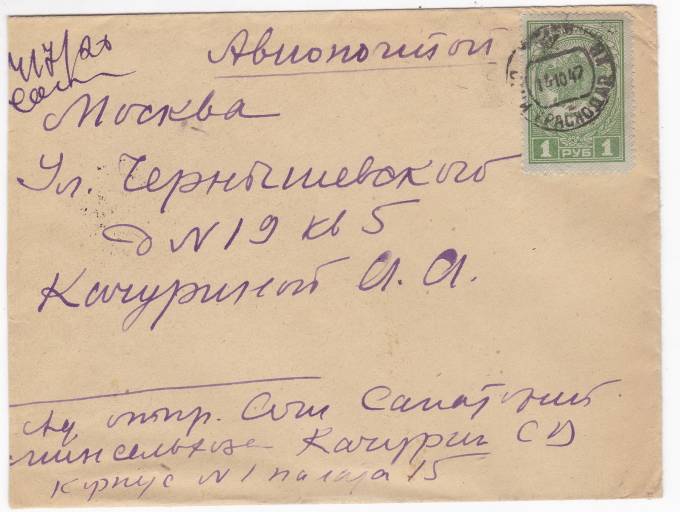 Авиопочтой
Москва
Ул. Чернышевского
Д N 19 кв 5
Качуриной А. А.
Ад отпр. Сочи Санаторий
минсельхоза Качурин С Д
Корпус N 1 палата 15
14 10 47
КРАСНОДАР
1 РУБ 1